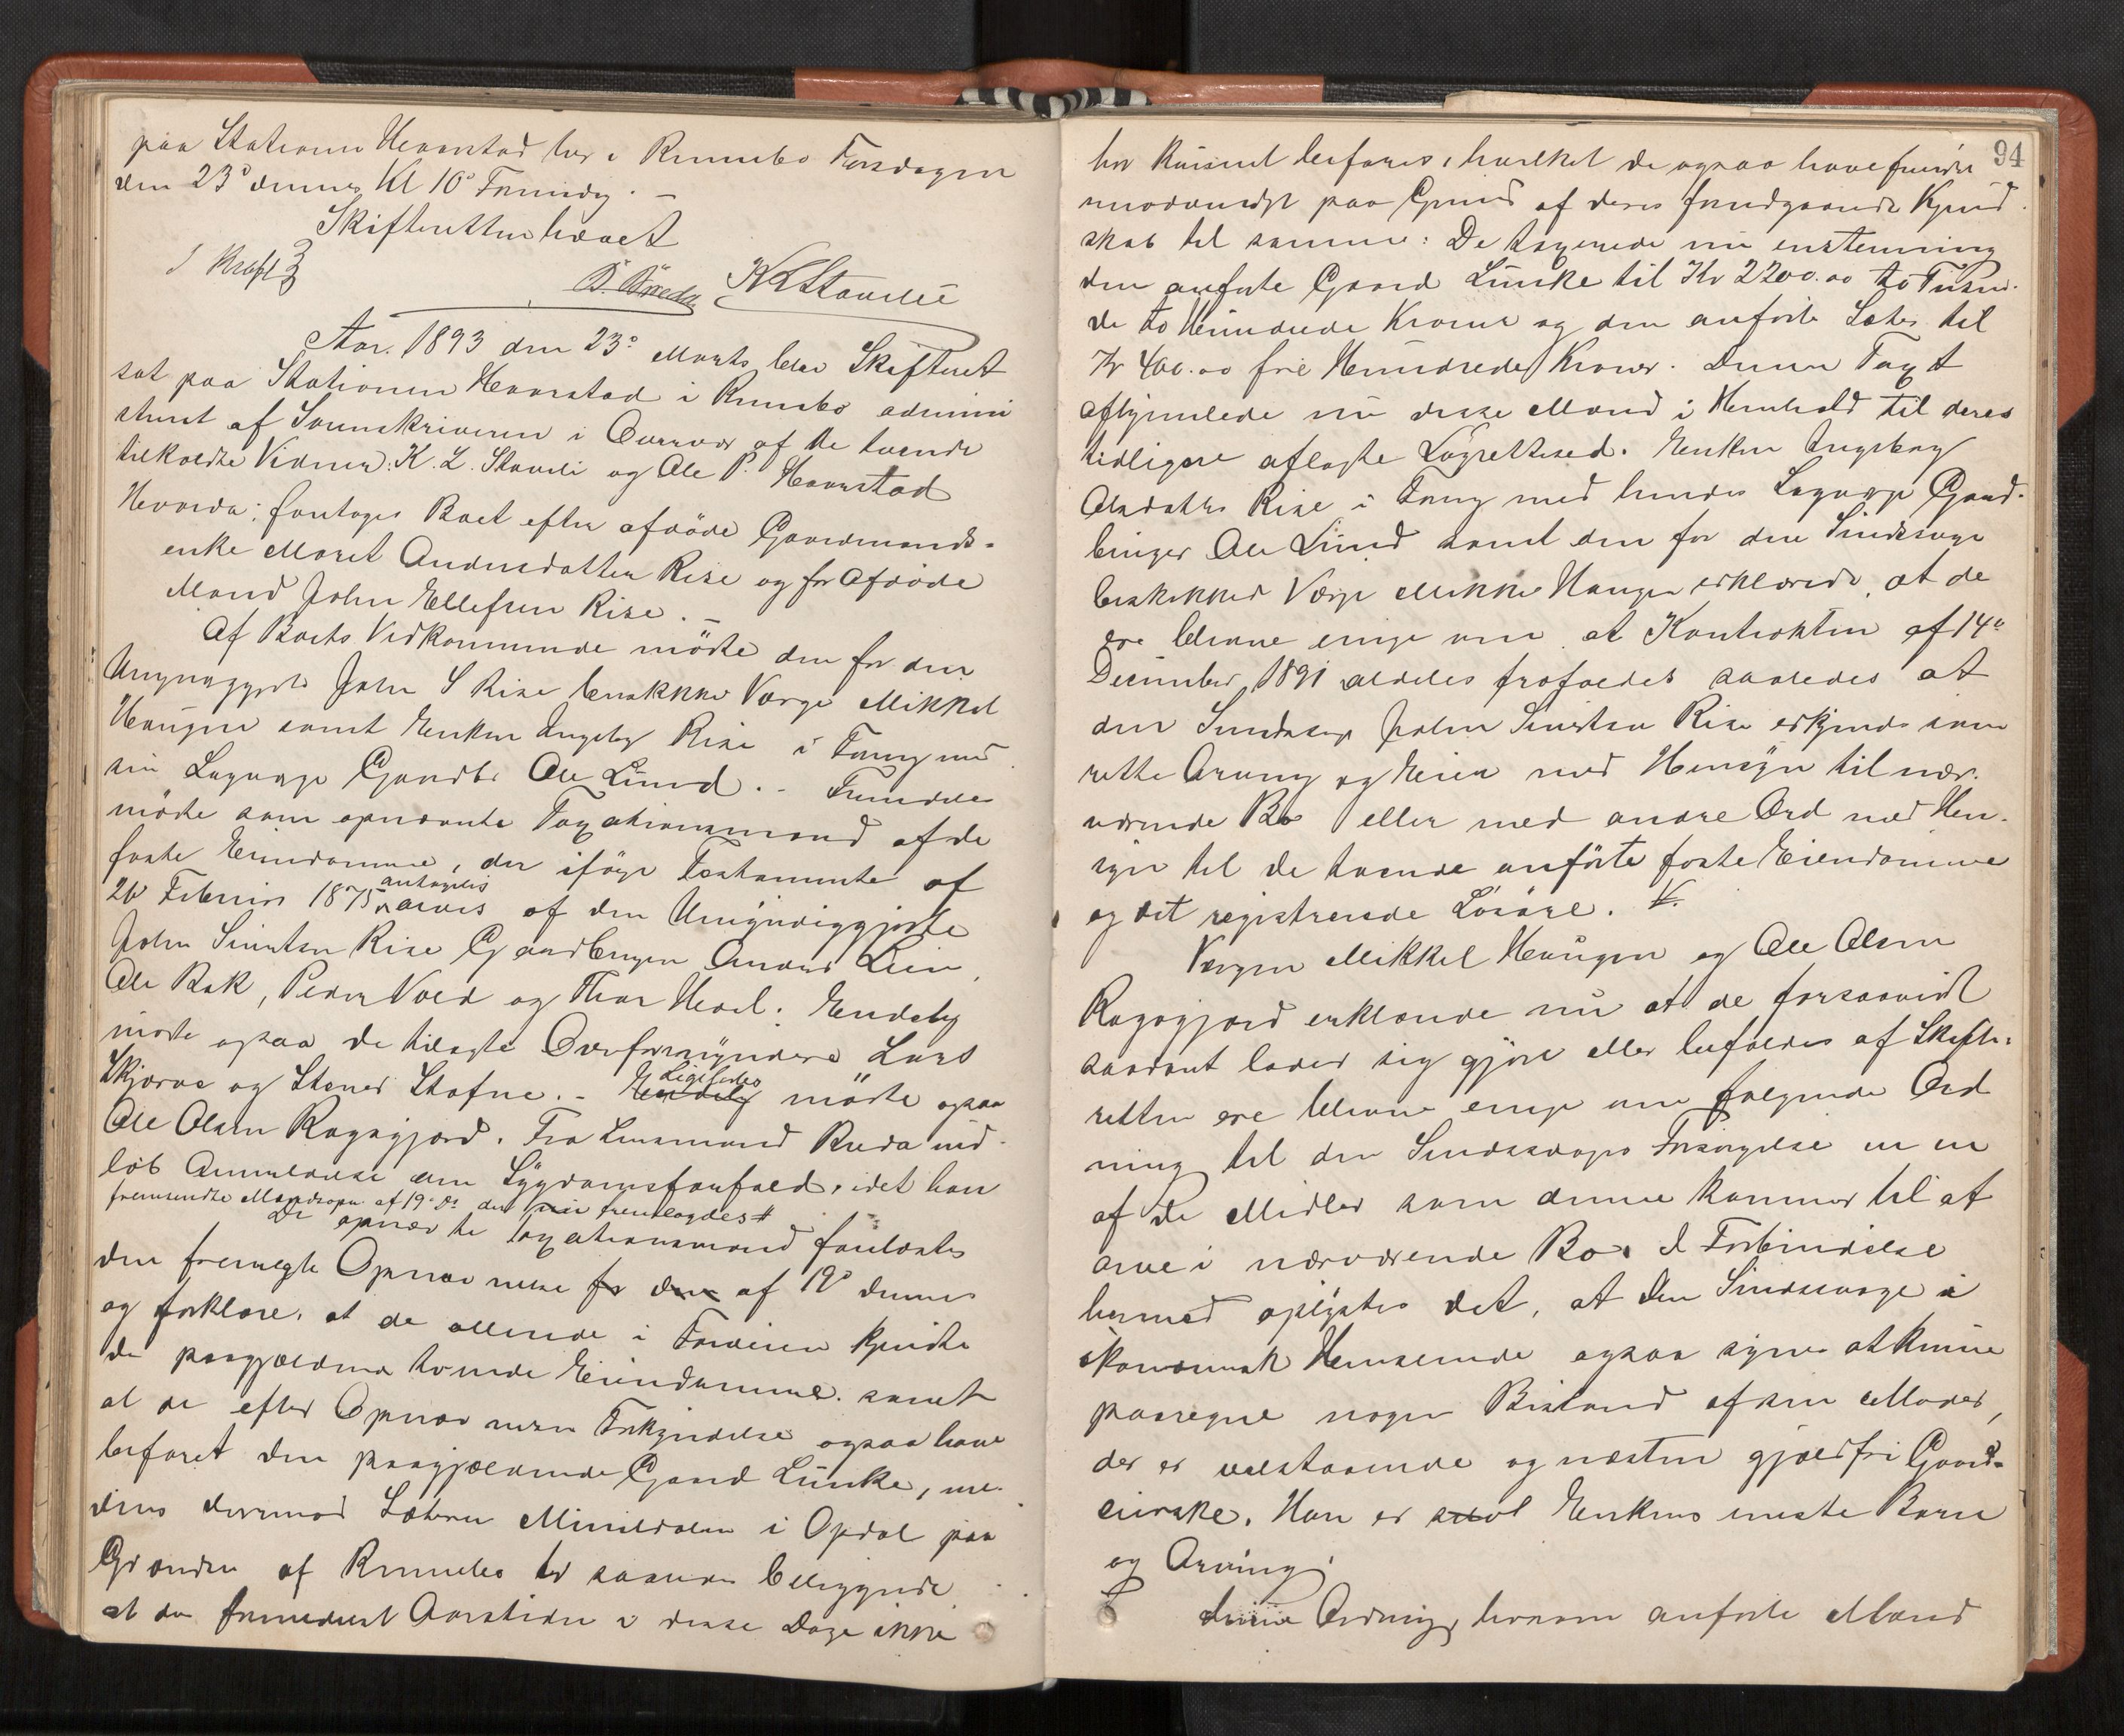 paa Stationen Havnstad her i Rennebo Torsdagen
den 23de dennes Kl 10 Formdg. –
Skifteretten hævet
J Krafft B. Breda K L Stavelie
Aar. 1893 den 23de Marts blev Skifteret
sat paa Stationen Havnstad i Rennebo admini
streret af Sorenskriveren i Overvær af de tvende
tilkaldte Vidner: K. L. Stavli og Ole P. Havnstad
Hvorda: foretoges Boet efter afdøde Gaardmands-
enke Maret Andersdatter Rise og før afdøde
Mand John Ellefsen Rise. –
Af Boets Vedkommende mødte den for den
Umyndiggjorte John S Rise beskikkede Værge Mikkel
Haugen samt Enken Ingeborg Rise i Fang med
sin Lagværge Gaardbr Ole Lund. – Fremdeles
mødte som opnævnte Taxationsmænd af de
faste Eiendomme, der ifølge Testamente af
26 Februar 1875 antagelig arves af den Umyndiggjorte
John Sivertsen Rise Gaardbruger Anders Lien,
Ole Bak, Peder Vold og Thor Hevel. Endelig
mødte ogsaa de tilsagte Overformyndere Lars
Skjerve og Stener Stafne. – Endelig Ligeledes mødte ogsaa
Ole Olsen Rogogjerd. Fra Lensmand Breda ind-
løb Anmeldelse om Sygdomsforfald, idet han
fremsendte Mandsopn. af 19de Ds. der nu fremlagdes #
De opnævnte Taxationsmænd forelæstes
den fremlagte Opnævnelse for den af 19de dennes
og forklare, at de allerede i Forveien kjendte
de paagjældende tvende Eiendomme samt
at de efter Opnævnelsen Forkyndelse ogsaa have
befaret den paagjældende Gaard Lunke, me-
dens derimod Sæteren Minildalen i Opdal paa
Grændsen af Rennebo er saaledes beliggende
at den formedelst Aarstiden i disse Dage ikke
94
har kunnet befares, hvilket de ogsaa have fundet
unødvendigt paa Grund af deres forudgaaende Kjend-
skab til samme: De taxerede nu enstemmig
den anførte Gaard Lunke til Kr 2200.00 to Tusin-
de to Hundrede Kroner og den anførte Sæter til
Kr 400.00 fire Hundrede Kroner. Denne Taxt
afhjemlede nu disse Mænd i Henhold til deres
tidligere aflagte Lagretteed. Enken Ingeborg
Olsdatter Rise i Fang med hendes Lagværge Gaard-
bruger Ole Lund samt den for den Sindssyge
beskikked Værge Mikkel Haugen erklærede, at de
ere blevne enige om at Kontrakten af 14de
December 1891 aldeles frafaldes saaledes at
den Sindssyge John Sivertsen Rise erkjendes som
rette Arving og Eier med Hensyn til nær-
værende Bo eller med andre Ord med Hen-
syn til de tvende anførte faste Eiendomme
og det registrerede Løsøre. V.
Værgen Mikkel Haugen og Ole Olsen
Rogogjerd erklærede nu at de forsaavidt
saadant lader sig gjøre eller bifaldes af Skifte-
retten ere blevne enige om følgende Ord
ning til den Sindssyges Forsørgelse en en
af de Midler som denne kommer til at
arve i nærværende Bo. I Forbindelse
hermed oplystes det, at den Sindssyge i
økonomisk Henseende ogsaa synes at kunne
paaregne nogen Bistand af sin Moder,
der er velstaaende og næsten gjældfri Gaard-
eierske. Han er saavel Enkens eneste Barn
og Arving.
Denne Ordning, hvorom anførte Mænd